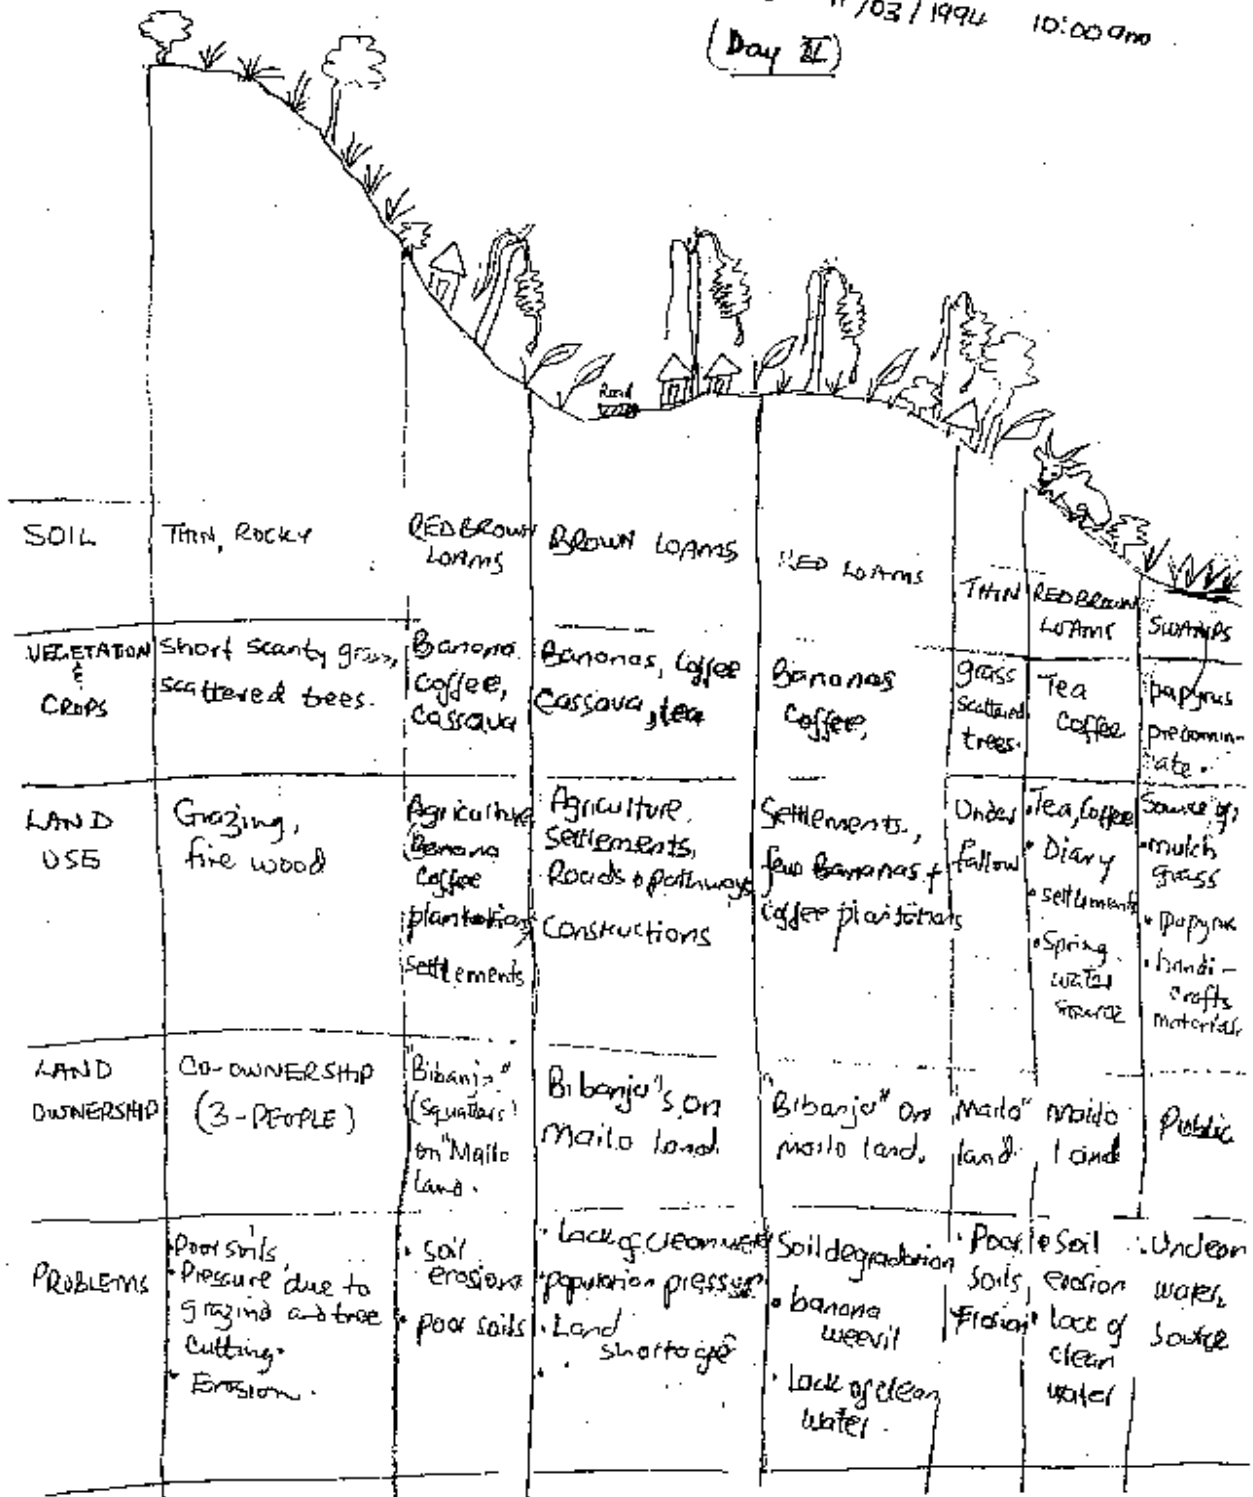 11/03/1994 10:00 am
(Day II)
Road
SOIL
THIN, ROCKY
RED BROWN
LOAMS
BROWN LOAMS
RED LOAMS
THIN
RED BROWN
LOAMS
SWAMPS
VEGETATION
&
CROPS
Short scanty grass,
scattered trees.
Banana.
Coffee,
Cassava
Bananas, Coffee
Cassava, tea
Bananas
Coffee,
grass
scattered
trees.
Tea
Coffee
papyrus
predomin-
ate.
LAND
USE
Grazing,
fire wood
Agriculture
(Banana
Coffee
plantations)
settlements
Agriculture,
settlements,
Roads & pathways
Constructions
Settlements,
few Bananas +
Coffee plantations
Under
fallow
• Tea, Coffee
• Diary
• settlements
• Spring
water
source
Source of;
• mulch
grass
• papyrus
• handi-
crafts
materials
LAND
OWNERSHIP
CO-OWNERSHIP
(3-PEOPLE)
"Bibanja"
(Squatters)
on "Mailo
Land.
Bibanja"s on
Mailo Land.
"Bibanja" on
mailo land.
Mailo"
land.
mailo
land
Public
PROBLEMS
• Poor soils
• Pressure due to
grazing and tree
cutting.
• Erosion.
• soil
erosion
• poor soils
• Lack of clean water
• population pressure
• Land
shortage
•
Soil degradation
• banana
weevil
• Lack of clean
water.
• Poor
soils,
• Erosion
• Soil
erosion
• lack of
clean
water
• Unclean
water,
source